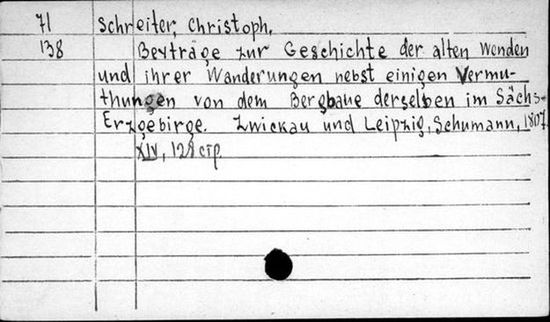 71 Schreiter, Christoph.
138 Beyträge zur Geschichte der alten Wenden
und ihrer Wanderungen nebst einigen Vermu-
thungen von dem Bergbaue derselben im Sächs-
Erzgebirge. Zwickau und Leipzig, Schumann, 1807.
XIV, 128 стр.